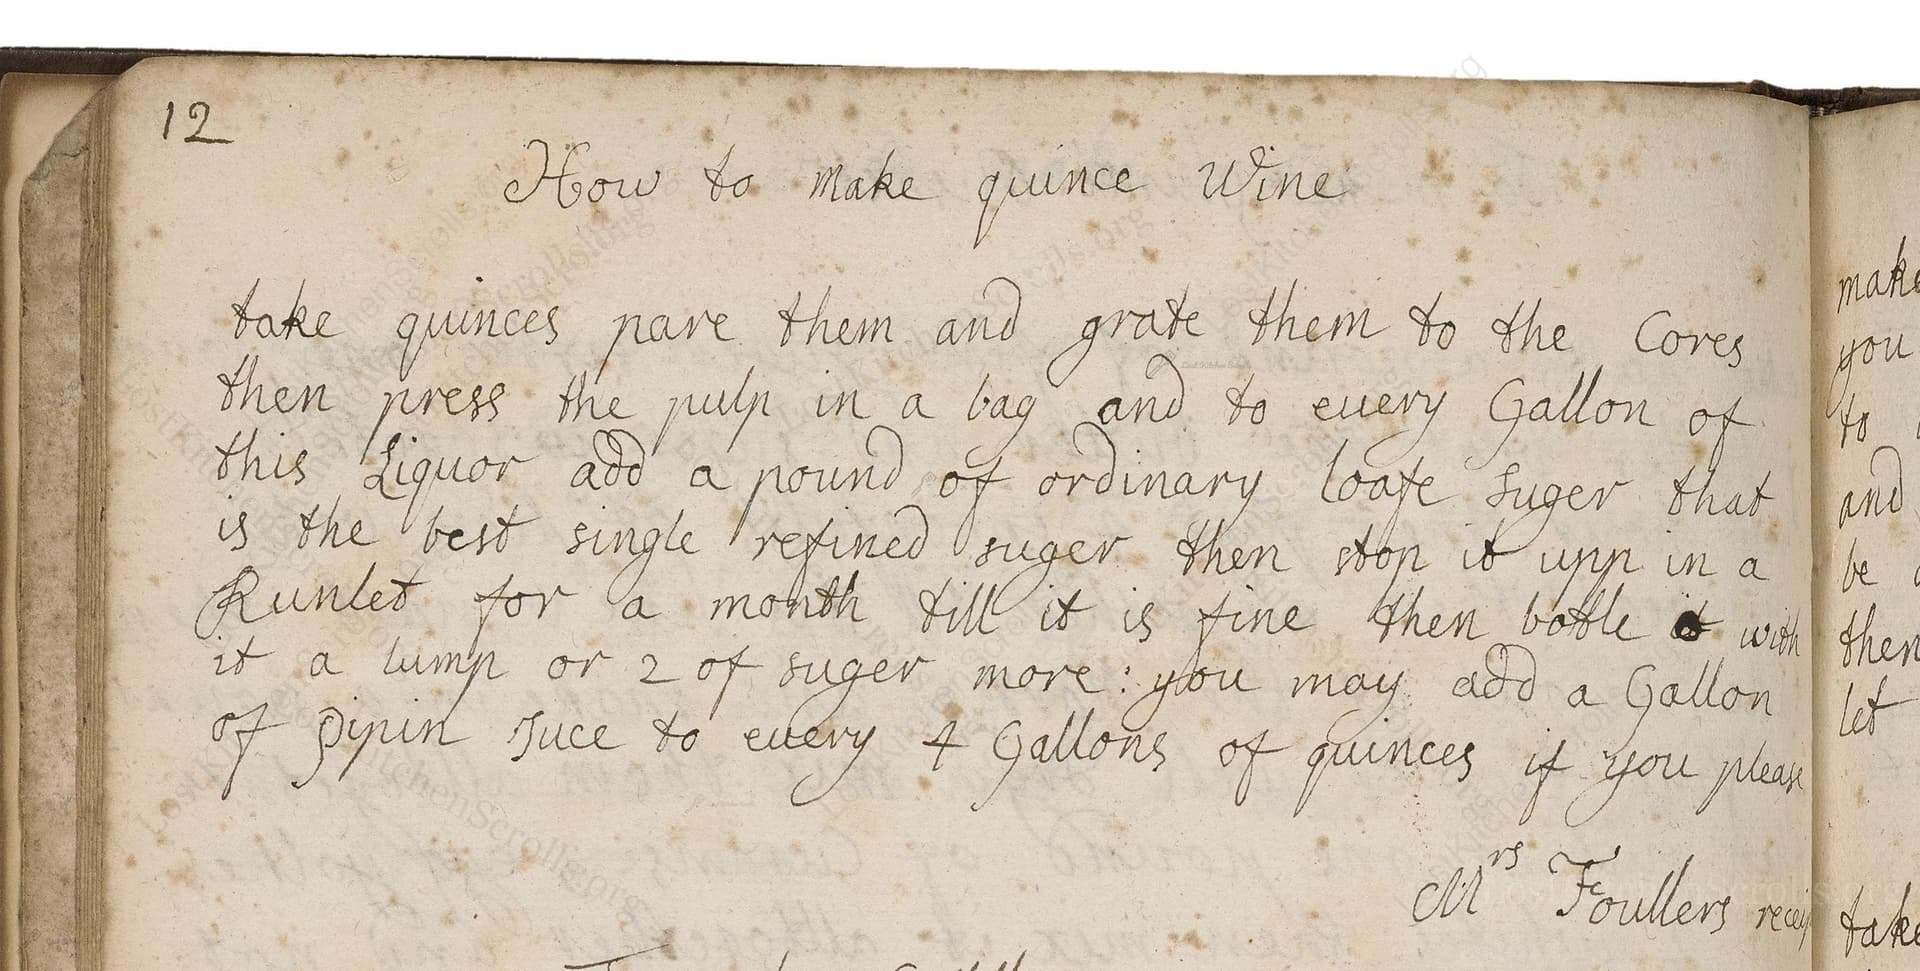 12
How to make quince Wine
take quinces pare them and grate them to the Cores
then press the pulp in a bag and to euery Gallon of
this Liquor add a pound of ordinary loafe suger that
is the best single refined suger then stop it upp in a
Runlet for a month till it is fine then botle it with
it a lump or 2 of suger more: you may add a Gallon
of pipin Juce to euery 4 Gallons of quinces if you please
Mrs Foullers
make
you
to
and
be
then
let
take